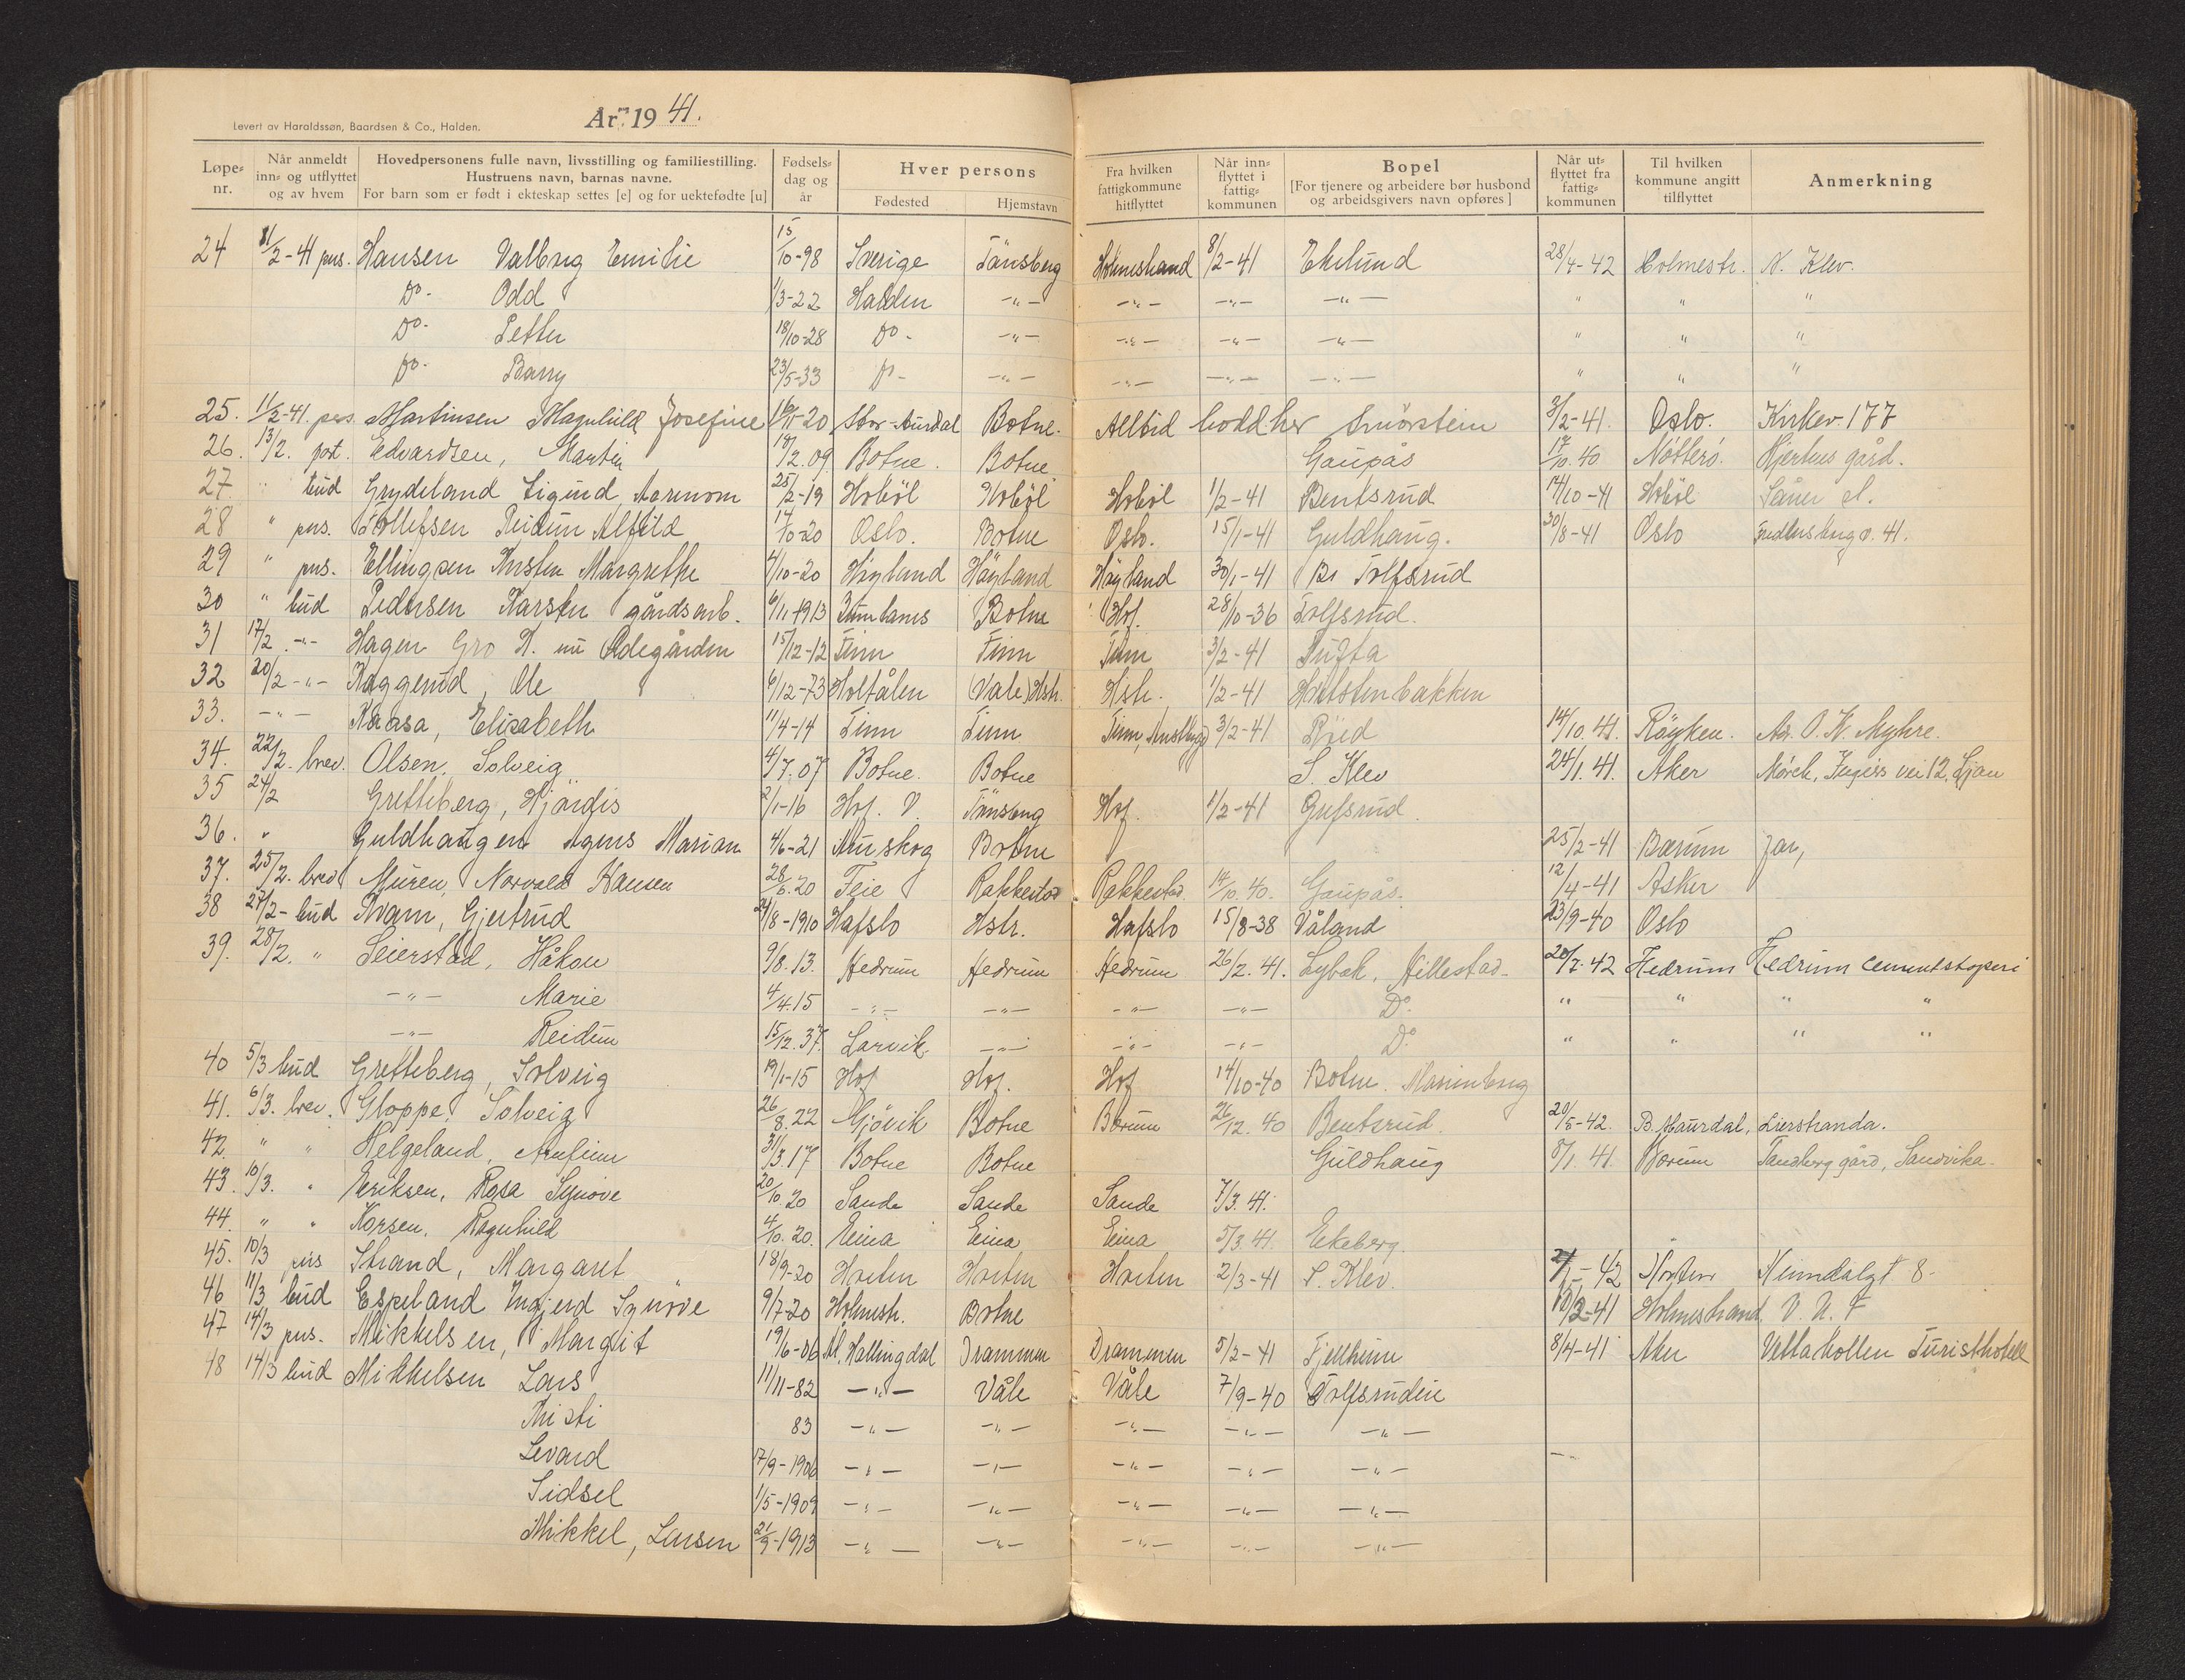 Levert av Haraldssøn, Baardsen & Co., Halden.
År 19 41.
Løpenr. | Når anmeldt inn- og utflyttet og av hvem | Hovedpersonens fulle navn, livsstilling og familiestilling. Hustruens navn, barnas navne. For barn som er født i ekteskap settes [e] og for uektefødte [u] | Fødselsdag og år | Hver persons Fødested | Hjemstavn | Fra hvilken fattigkommune hitflyttet | Når innflyttet i fattigkommunen | Bopel [For tjenere og arbeidere bør husbond og arbeidsgivers navn opføres] | Når utflyttet fra fattigkommunen | Til hvilken kommune angitt tilflyttet | Anmerkning
24 11/2-41 pers. Hansen Valborg Emilie 15/10-98 Sverige Tønsberg Holmestrand 8/2-41 Ekelund 28/4-42 Holmestr. N. Klev.
Do- Odd 1/3-22 Halden -"- -"- -"- -"- " " "
Do- Petter 18/10-28 Do- -"- -"- -"- -"- " " "
Do- Barry 23/5-33 Do- -"- -"- -"- -"- " " "
25. 11/2-41. pers. Martinsen Magnhild Josefine -20 Botne. Alltid bodd her Smörstein 3/2-41. Oslo. Kirkev. 177
26. 13/2. post. Edvardsen, Martin 19/2.09 Botne. Botne Gaupås 17/10.40 Nötterö. Hjertnes gård.
27. " bud Grydeland Sigund 25/2-19 Hobøl Hobøl Hobøl 1/2-41 Bentsrud 14/10-41 Hobøl Såner st.
28 " pers. Tollefsen Reidun Alfild 17/10-20 Oslo. Botne Oslo. 15/1-41 Guldhaug. 30/8-41 Oslo 41.
29 " pers. Ellingsen Kirsten Margrethe 7/10-20 Høyland Høyland Høyland 30/1-41 Br Tolfsrud
30 " bud Pedersen Karsten gårdsarb. 6/11-1913 Botne Hof. 28/10-36 Tolfsrud.
31 17/2. -"- Hagen Gro H. nu Ødegården 15/12-12 Tinn Tinn Tinn 3/2-41 Tufta
32 20/2 -"- Raggerud, Ole 6/12-73 Holtålen (Våle) Hstr. Hstr. 1/2-41 Holstenbakken
33. -"- Kaasa, Elisabeth 11/4-14 Tinn Tinn Tinn, Austbygd 3/2-41 Röed 14/10.41. Röyken. Ad. O. K. Myhre.
34. 22/2. brev. Olsen, Solveig 4/7.07 Botne. Botne S. Klev 24/1.41. Aker Mörch, Ingiers vei 12, Ljan
35 24/2 Gretteberg, Hjördis 2/1-16 Hof. V. Tönsberg Hof. 1/2-41 Gufsrud.
36. " Guldhaugen Agnes Marian 4/6-21 Botne 25/2-41 Bærum Jar,
37. 25/2. brev Muren, Norvald Hansen 28/6.20 Feie Rakkestad Rakkestad. 14/10.40. Gaupås. 12/4-41 Asker
38 27/2- bud Kvam, Gjertrud 24/8-1910 Hafslo Hstr. Hafslo 15/8-38 Våland 23/9-40 Oslo
39. 28/2. " Seierstad, Håkon 9/8.13. Hedrum Hedrum Hedrum 26/2.41. Lybek, Hillestad- 20/7-42 Hedrum Hedrum cementstøperi
-"- Marie 4/4.15 -"- -"- -"- -"- Do. " " " "
-"- Reidun 15/12.37. Larvik. -"- -"- -"- Do. " " " "
40 5/3 bud Gretteberg, Solveig 19/1-15 Hof Hof. Hof 14/10-40 Botne. Marienborg
41. 6/3. brev. Gloppe Solveig 26/8.22 Gjövik Botne Bærum 26/12.40 Bentsrud. 20/5-42. Lierstranda.
42. " " Helgeland, 31/3.17 Botne Botne Guldhaug 8/1.41. Bærum Tandberg gård, Sandvika.
43. 10/3. " Eriksen, Rosa Synöve 20/10.20 Sande Sande Sande 7/3.41.
44. " " Korsen, Ragnhild 4/10.20. Eina Eina Eina 5/3.41. Ekeberg.
45. 10/3 pers Strand, Margaret 18/9-20 Horten Horten Horten 2/3-41 S. Klev. -42 Horten 8-
46 11/3 bud Espeland Ingjerd Synöve 9/7-20 Holmestr. Botne 10/3-41 Holmestrand.
47 14/3 pers. Mikkelsen, Margit 19/6-06 Ål, Hallingdal Drammen Drammen 5/2-41 Fjellheim 8/4-41 Aker Vettakollen Turisthotell
48 14/3 bud Mikkelsen Lars 11/11-82 -"- Våle Våle 7/9-40 Tolfsrudeie
Kristi 83 -"- -"- -"- -"- -"-
Levard 17/9-1906 -"- -"- -"- -"- -"- -"-
Sidsel 1/5-1909 -"- -"- -"- -"- -"-
Mikkel, Larsen 21/9-1913 -"- -"- -"- -"- -"-